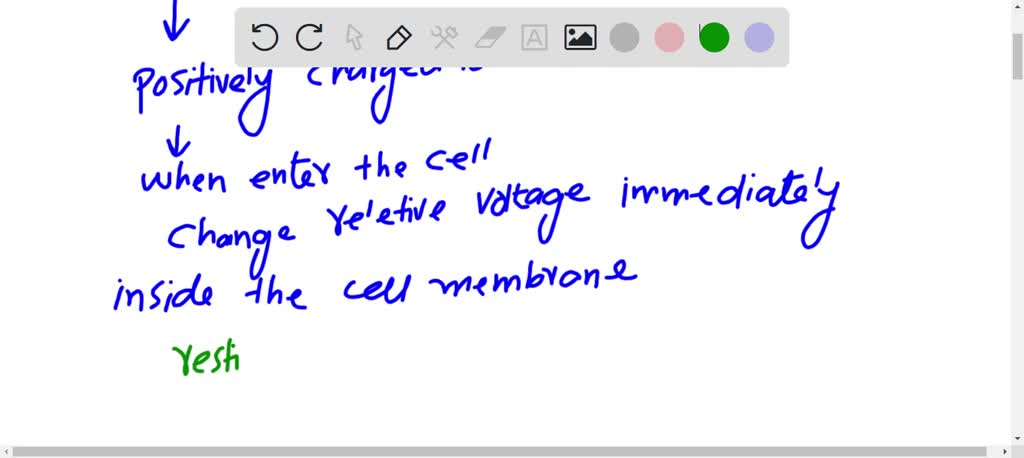 Positively
when enter the cell
Change reletive voltage immediately
inside the cell membrane
resti